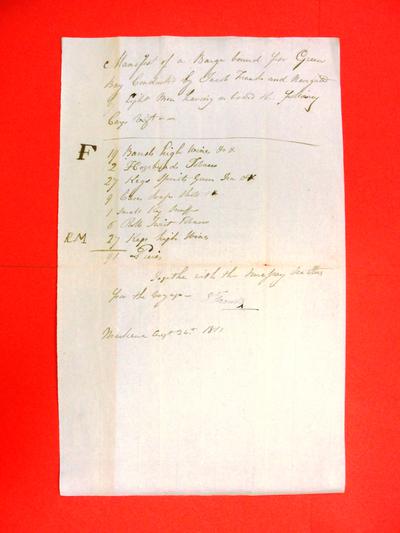 Manifest of a Barge bound for Green
Bay Conducted by Jacob Franks and Navigated
by Eight Men having on board the following
Cargo Viz
F 19 Barrels high Wine
2 Hogsheads Tobacco
27 Kegs Spirits Gum
9
1 Small Keg Snuff
6 Rolls Twist Tobacco
RM 27 Kegs high Wines
91
Together with the necessary
for the Voyage J Franks
Mackinac Augt 24th